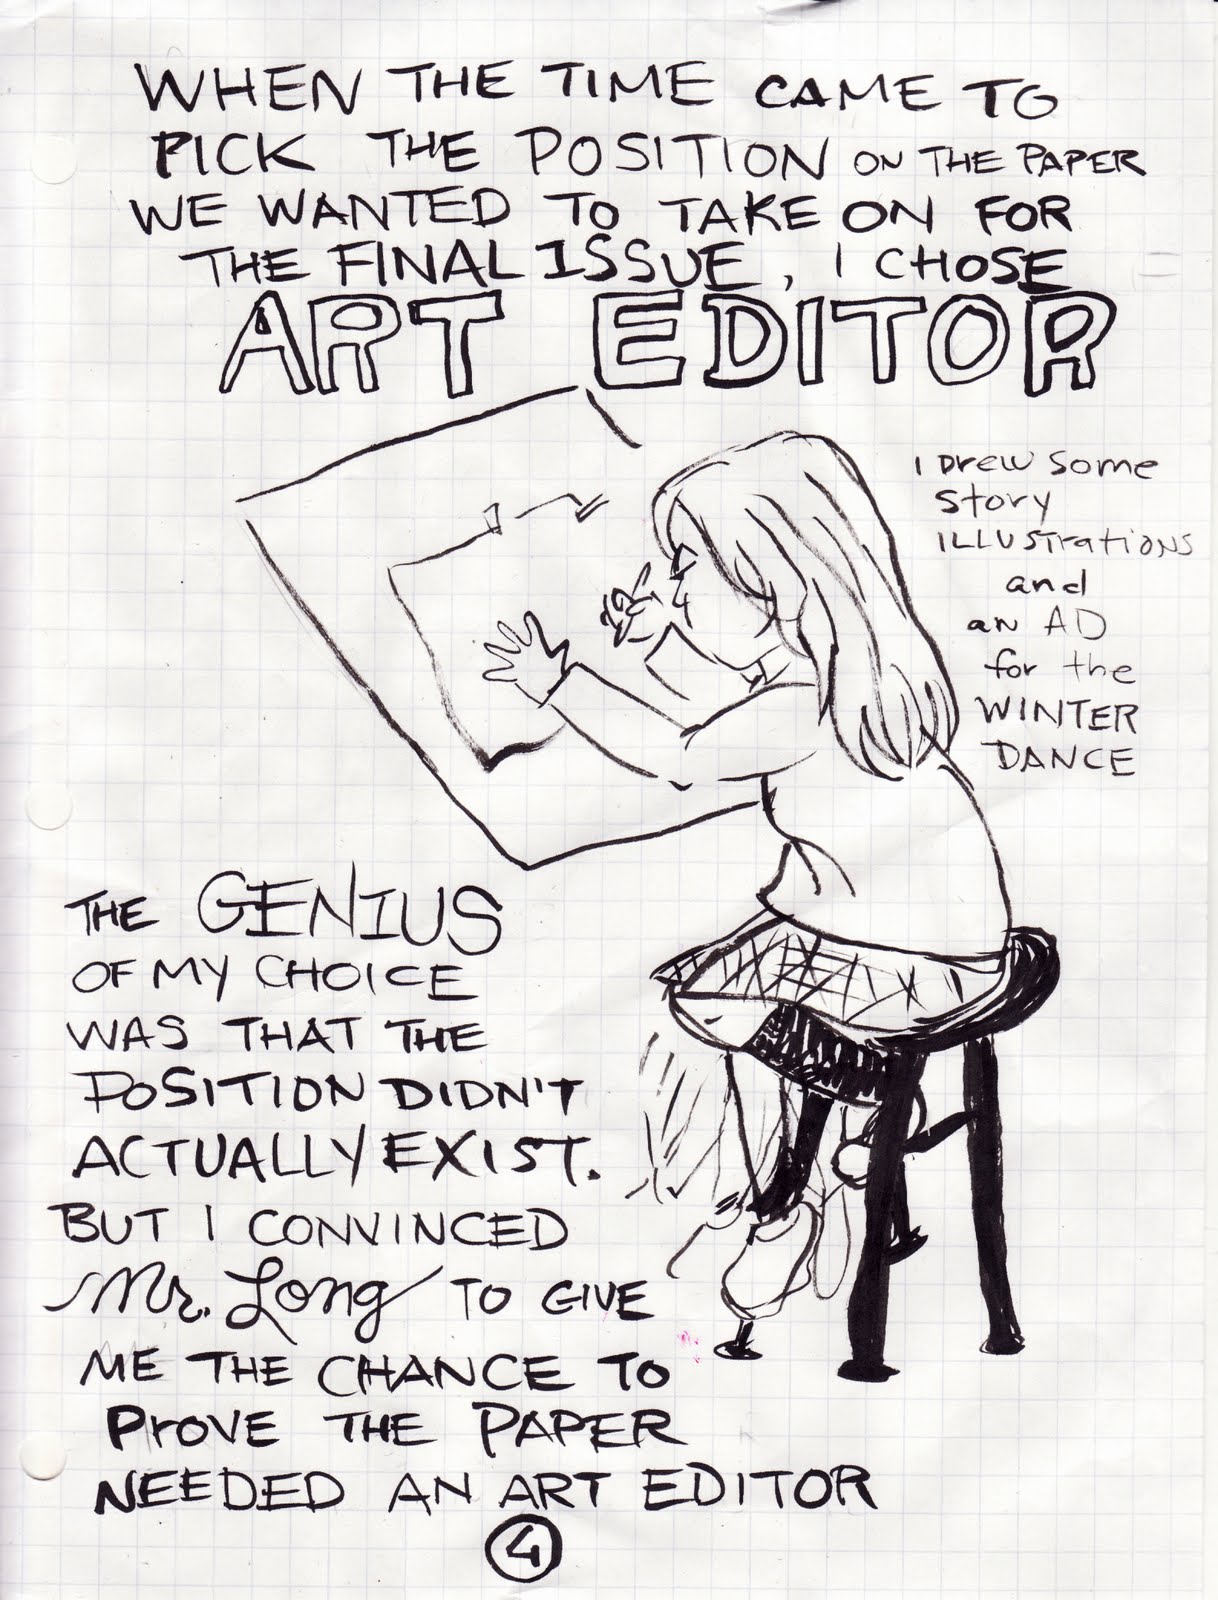 WHEN THE TIME CAME TO
PICK THE POSITION ON THE PAPER
WE WANTED TO TAKE ON FOR
THE FINAL ISSUE, I CHOSE
ART EDITOR
I Drew some
Story
ILLUStrations
and
an AD
for the
WINTER
DANCE
THE GENIUS
OF MY CHOICE
WAS THAT THE
POSITION DIDN'T
ACTUALLY EXIST.
BUT I CONVINCED
Mr. Long TO GIVE
ME THE CHANCE TO
PrOVE THE PAPER
NEEDED AN ART EDITOR
4